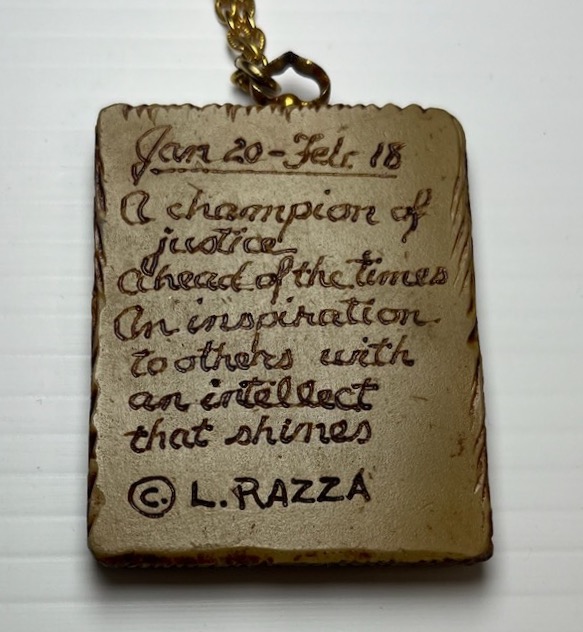 Jan 20-Feb. 18
A champion of
justice
Ahead of the times
An inspiration
to others with
an intellect
that shines
©. L. RAZZA